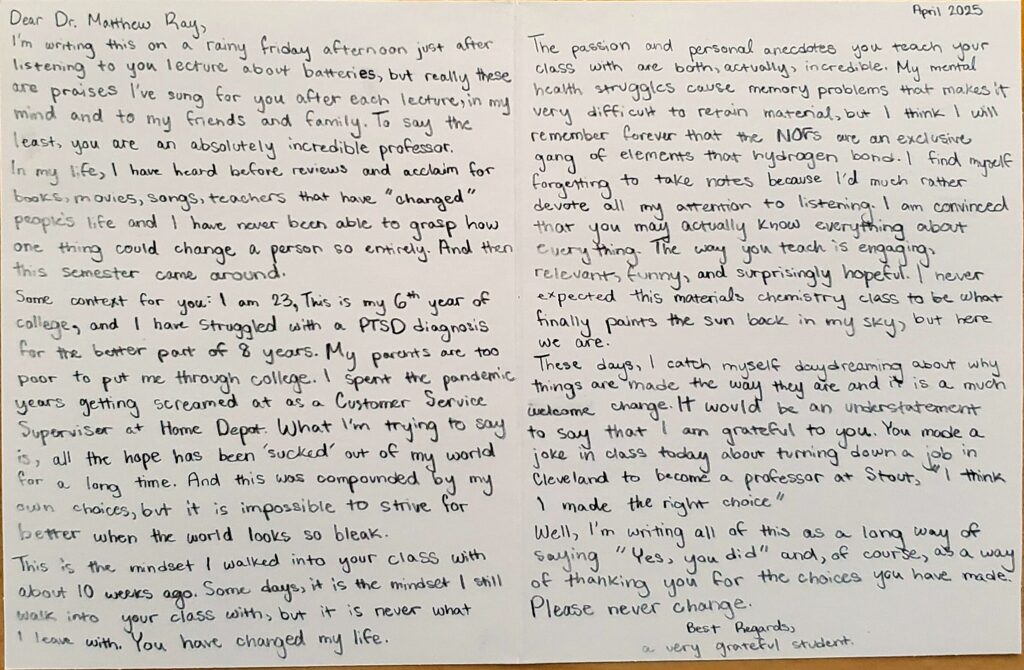 Dear Dr. Matthew Ray,
I'm writing this on a rainy friday afternoon just after
listening to you lecture about batteries, but really these
are praises I've sung for you after each lecture, in my
mind and to my friends and family. To say the
least, you are an absolutely incredible professor.
In my life, I have heard before reviews and acclaim for
books, movies, songs, teachers that have "changed"
people's life and I have never been able to grasp how
one thing could change a person so entirely. And then
this semester came around.
Some context for you: I am 23, This is my 6th year of
college, and I have struggled with a PTSD diagnosis
for the better part of 8 years. My parents are too
poor to put me through college. I spent the pandemic
years getting screamed at as a Customer Service
Superviser at Home Depot. What I'm trying to say
is, all the hope has been 'sucked' out of my world
for a long time. And this was compounded by my
own choices, but it is impossible to strive for
better when the world looks so bleak.
This is the mindset I walked into your class with
about 10 weeks ago. Some days, it is the mindset I still
walk into your class with, but it is never what
I leave with. You have changed my life.
April 2025
The passion and personal anecdotes you teach your
class with are both, actually, incredible. My mental
health struggles cause memory problems that makes it
very difficult to retain material, but I think I will
remember forever that the NOFs are an exclusive
gang of elements that hydrogen bond. I find myself
forgetting to take notes because I'd much rather
devote all my attention to listening. I am convinced
that you may actually know everything about
everything. The way you teach is engaging,
relevant, funny, and surprisingly hopeful. I never
expected this materials chemistry class to be what
finally paints the sun back in my sky, but here
we are.
These days, I catch myself daydreaming about why
things are made the way they are and it is a much
welcome change. It would be an understatement
to say that I am grateful to you. You made a
joke in class today about turning down a job in
Cleveland to become a professor at Stout, "I think
I made the right choice"
Well, I'm writing all of this as a long way of
saying "Yes, you did" and, of course, as a way
of thanking you for the choices you have made.
Please never change.
Best Regards,
a very grateful student.